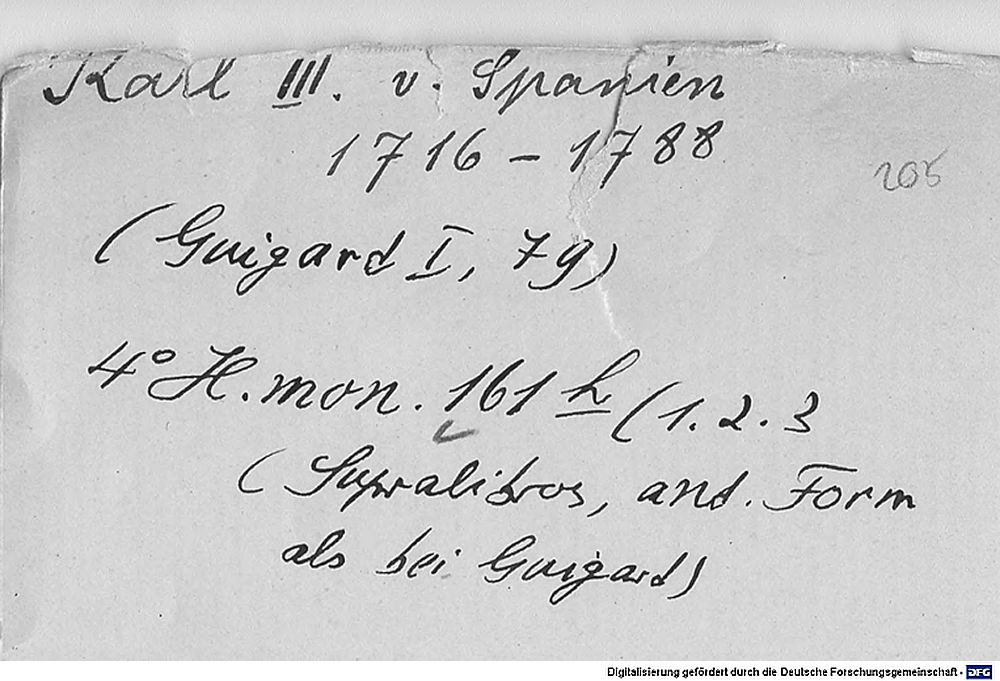 Karl III. v. Spanien
1716 - 1788
205
(Guigard I, 79)
4° H. mon. 161 h (1. 2. 3
(Supralibros, and. Form
als bei Guigard)
Digitalisierung gefördert durch die Deutsche Forschungsgemeinschaft - DFG